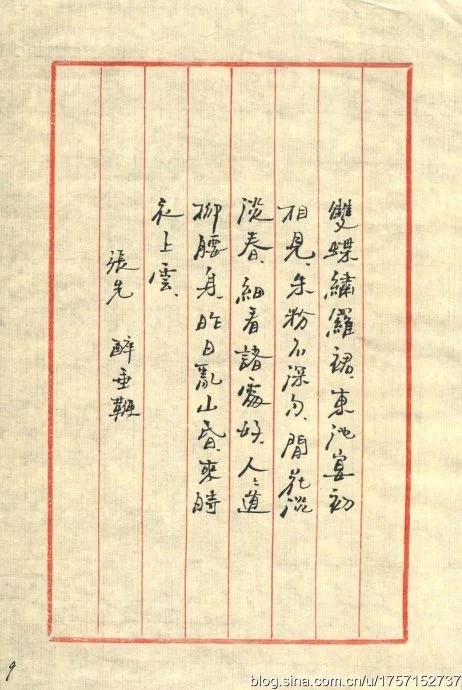 雙蝶繡羅裙、東池宴初
相見、朱粉不深勻、間花淡
淡春、細看諸處好、人々道
柳腰身、昨日亂山昏、來時
衣上雲、
張先 醉垂鞭
9
blog.sina.com.cn/u/1757152737